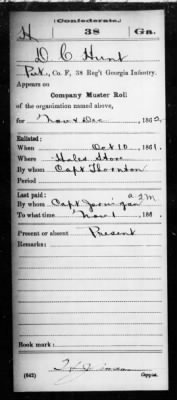 (Confederate.)
H 38 Ga.
D C Hunt
Pvt., Co. F, 38 Reg't Georgia Infantry.
Appears on
Company Muster Roll
of the organization named above,
for Nov & Dec, 186
Enlisted:
When Oct 10, 1861.
Where Hales Store
By whom Capt Thornton
Period
Last paid:
By whom Capt a 2 M
To what time Nov 1, 186 .
Present or absent Present
Remarks:
Book mark:
(642) Copyist.